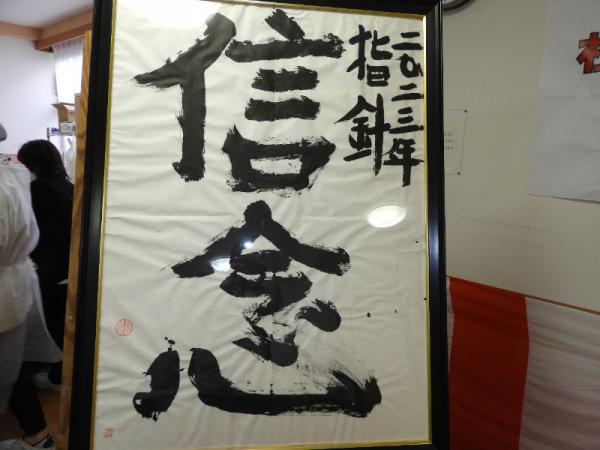 二〇二三年
指針
信念